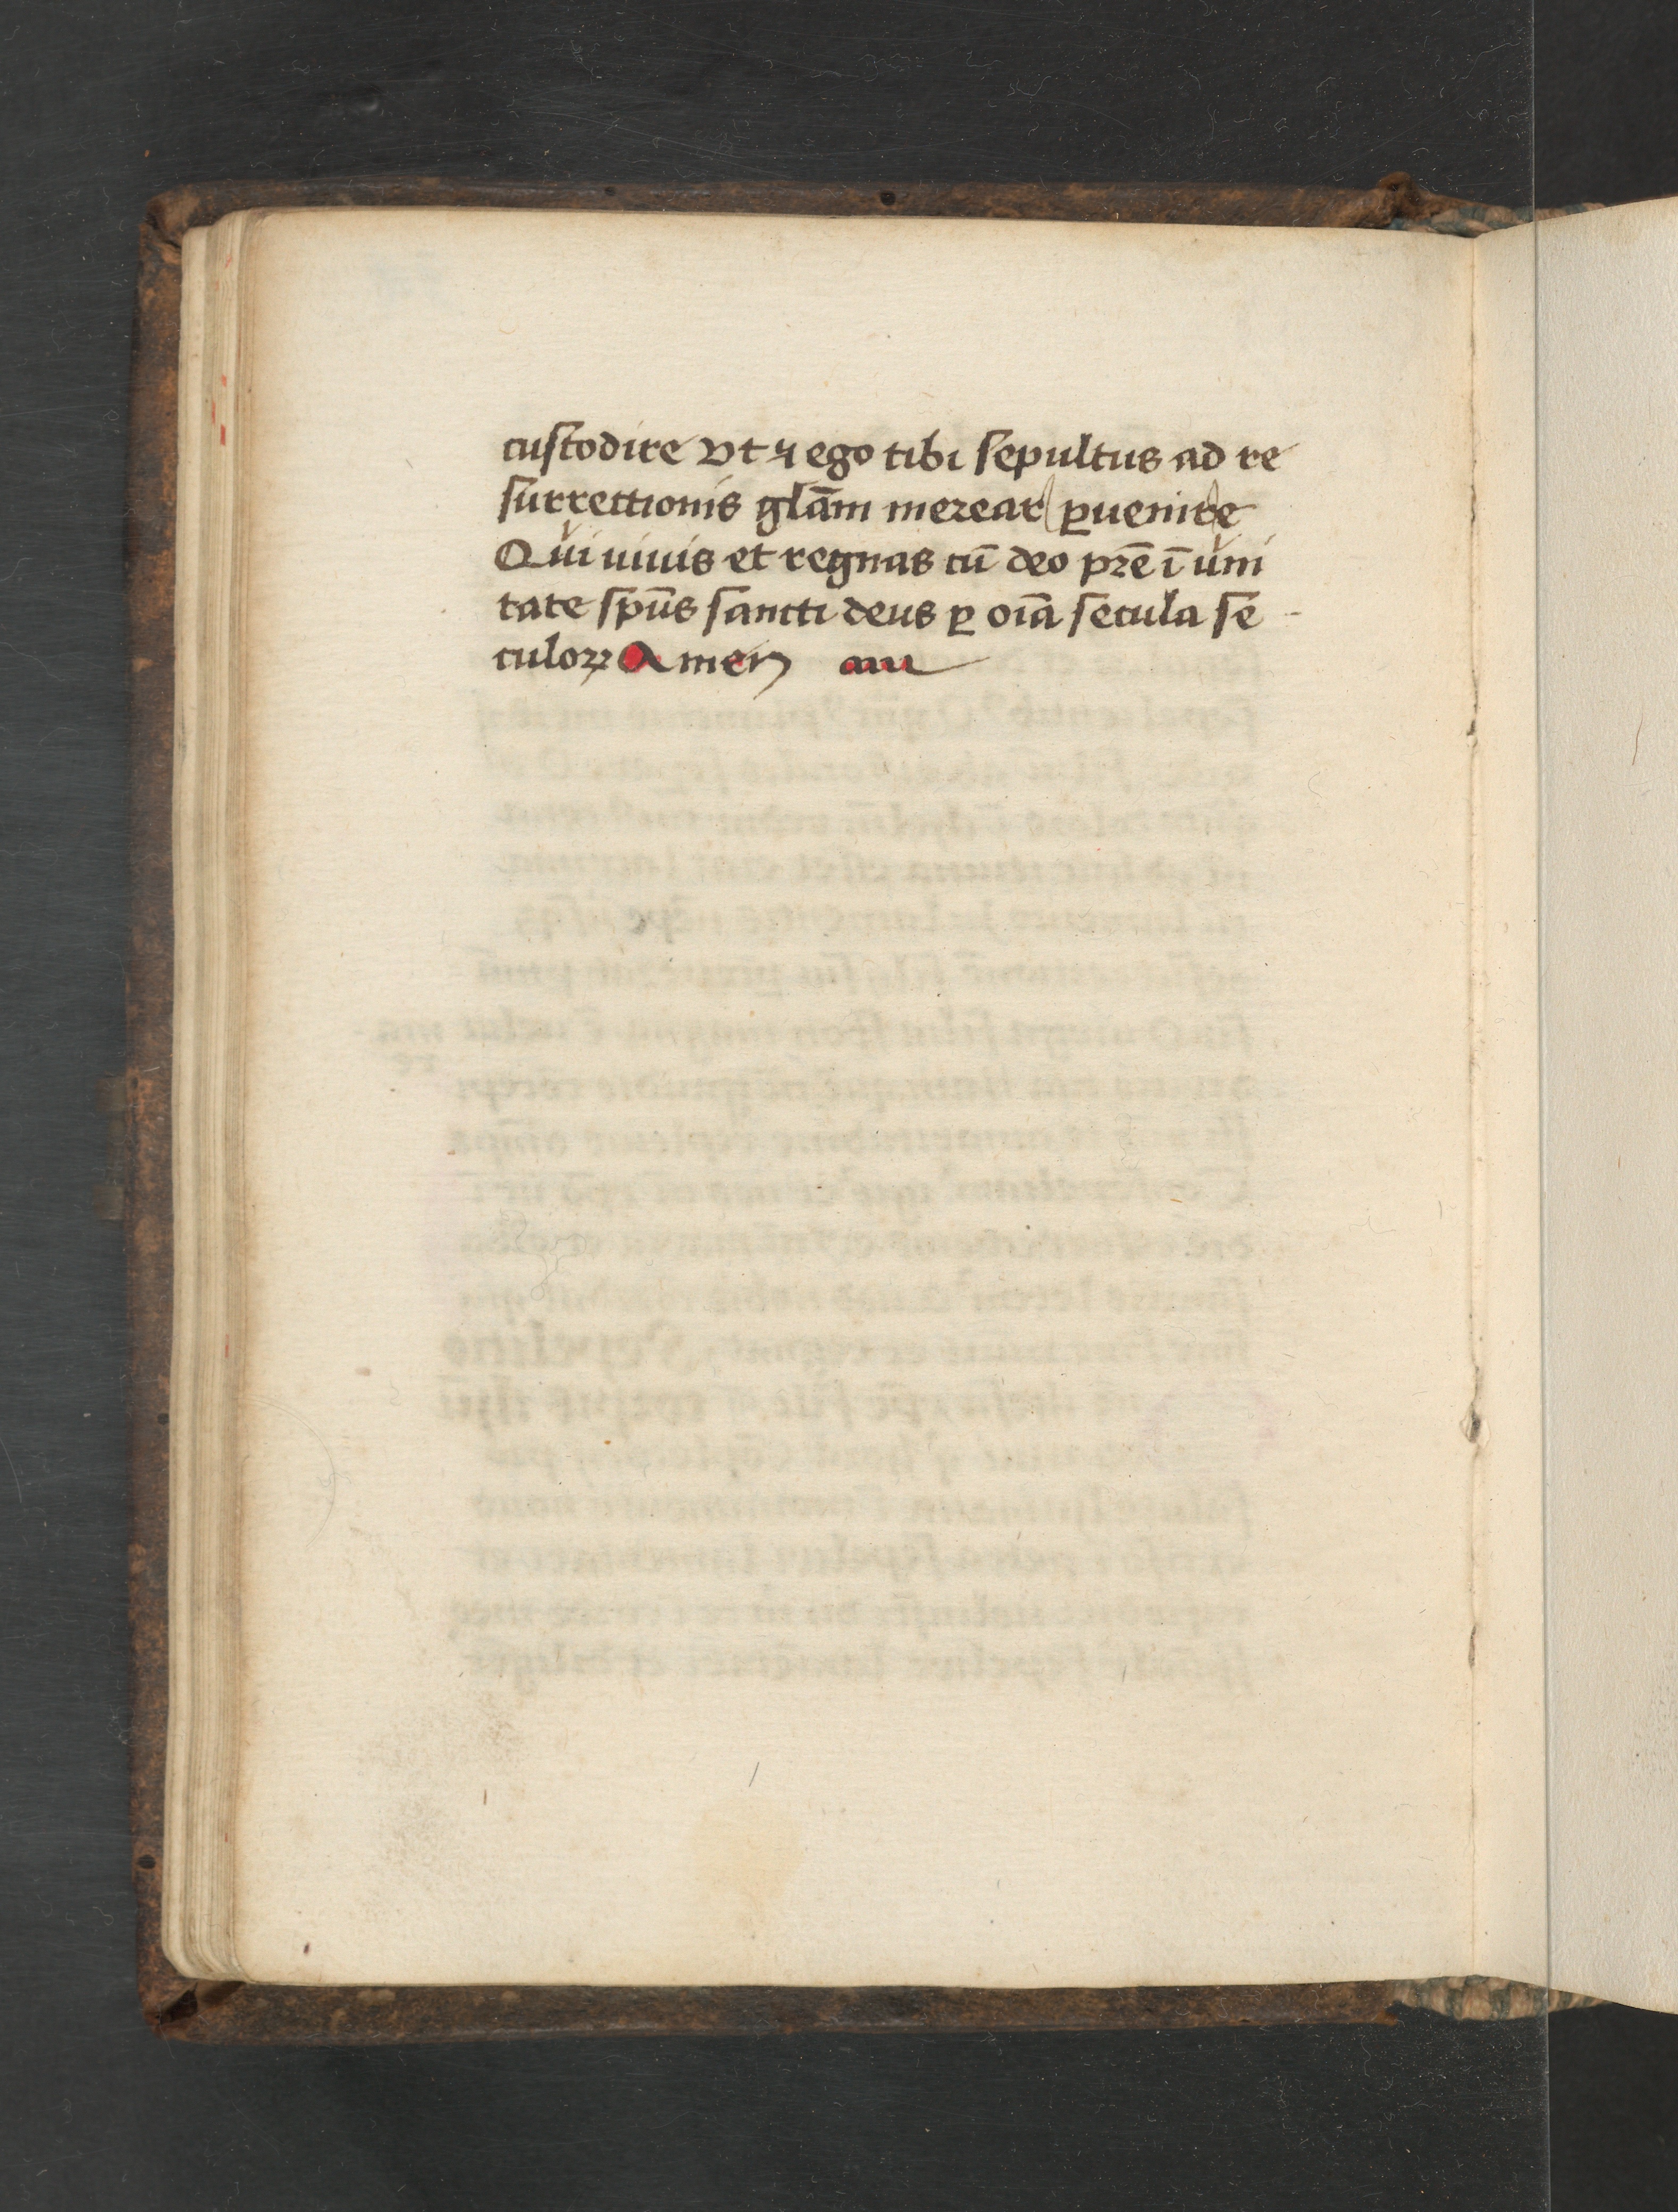 custodire vt ⁊ ego tibi sepultus ad re
surrectionis glām merear ꝑuenire
Qui uiuis et regnas cū deo pr̄e ī vni
tate spūs sancti deus ꝑ oīa secula se
culoꝝ Amen